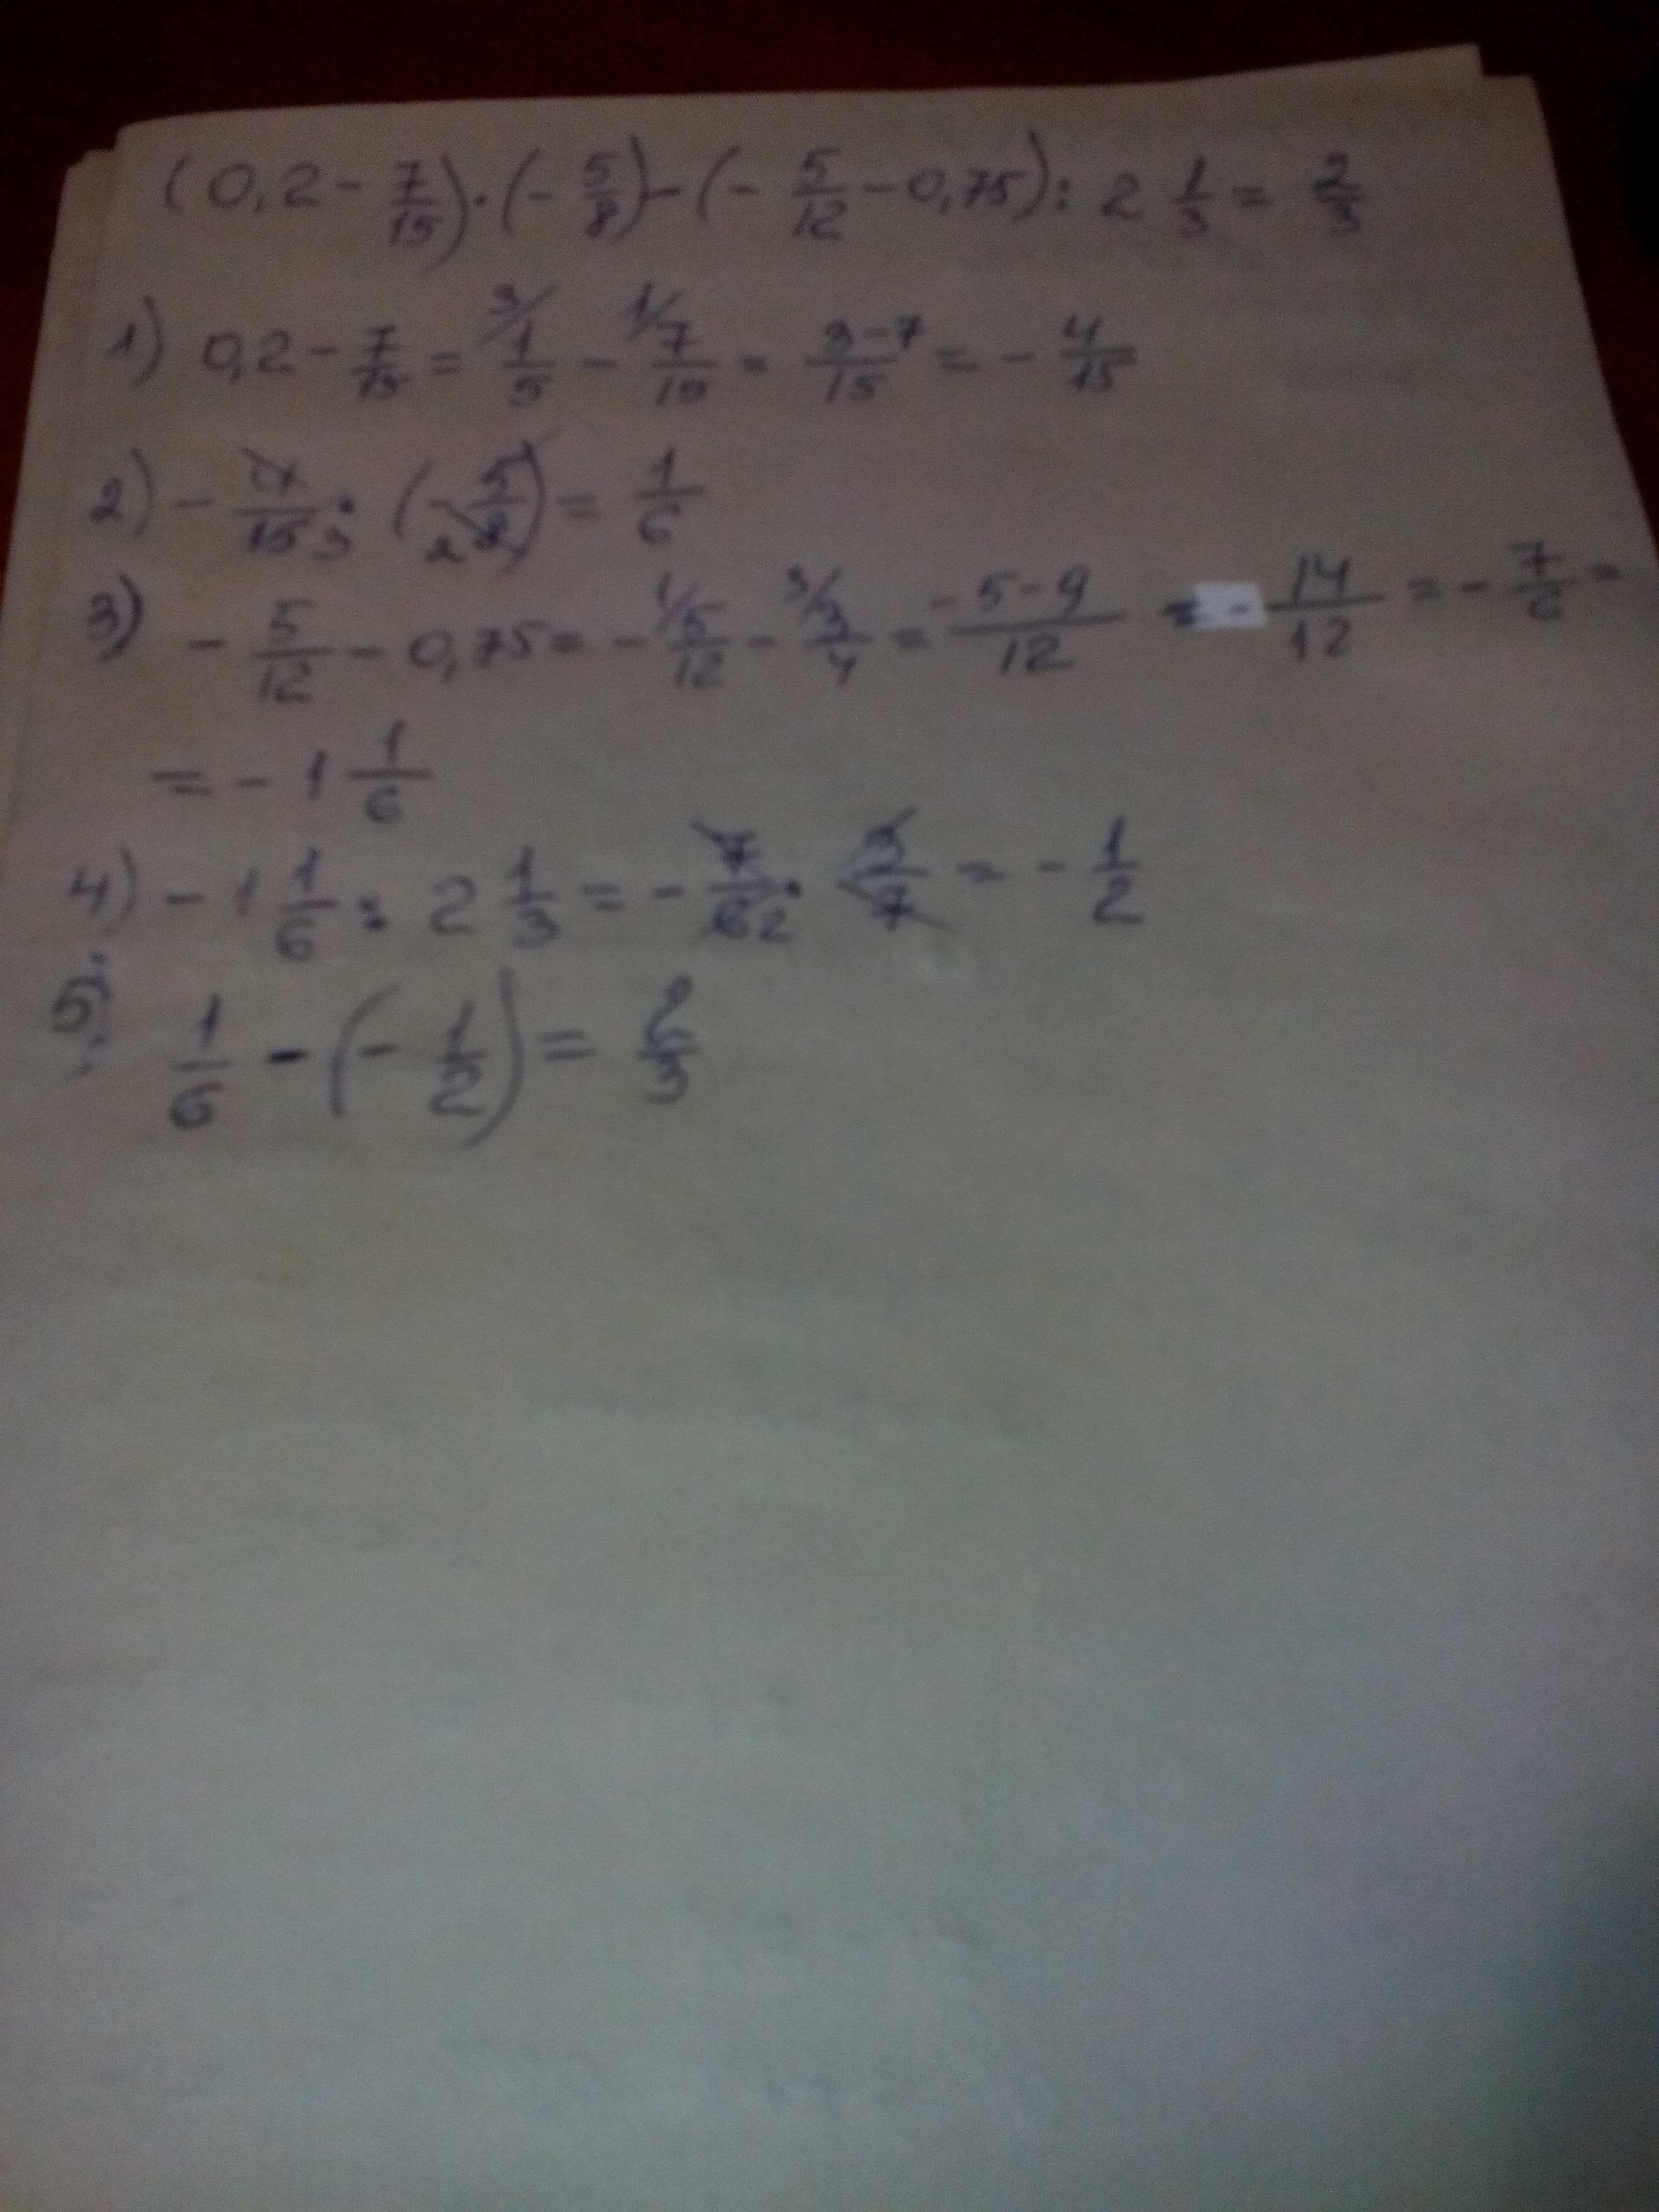 (0,2 - 7/15) · (- 5/8) - (- 5/12 - 0,75) : 2 1/3 = 2/3
1) 0,2 - 7/15 = 3/ 1/5 - 1/ 7/15 = 3-7/15 = - 4/15
2) - 4/15 3 · (- 5/8 2) = 1/6
3) - 5/12 - 0,75 = - 1/ 5/12 - 3/ 3/4 = -5-9/12 = - 14/12 = - 7/6 =
= - 1 1/6
4) - 1 1/6 : 2 1/3 = - 7/6 2 · 3/7 = - 1/2
5) 1/6 - (- 1/2) = 2/3